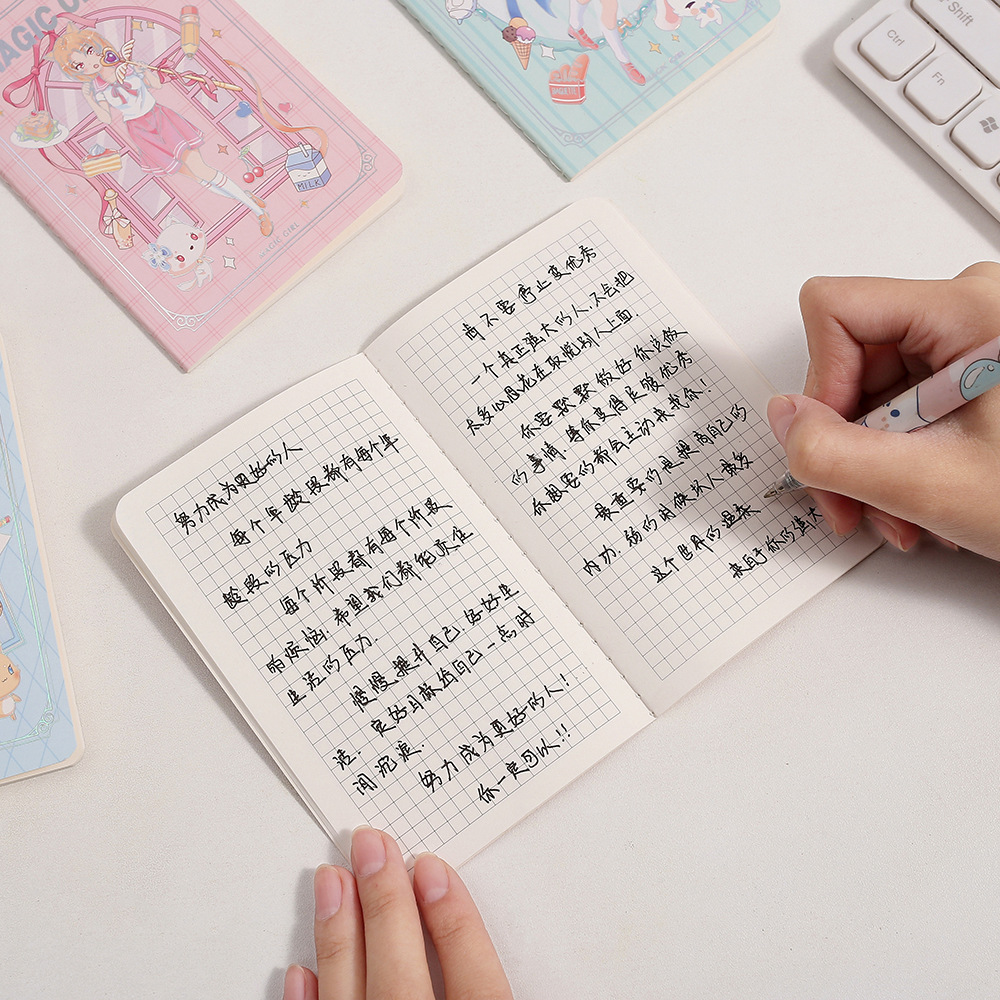 MAGIC
MILK
MAGIC GIRL
MAGIC GIRL
Ctrl
Shift
Fn
努力成为更好的人
每个年龄段都有每个年
龄段的压力
每个阶段都有每个阶段
的烦恼.希望我们都能承住
生活的压力.
慢慢提升自己.好好生
活.定好目标给自己一点时
间沉淀.
努力成为更好的人!
你一定可以!!
请不要停止变优秀
一个真正强大的人.不会把
太多心思花在取悦别人上面.
你要默默做好你该做
的事情.等你变得足够优秀
你想要的都会主动来找你!
最重要的是提高自己的
内功.弱的时候坏人最多
这个世界的温柔
来自于你的强大